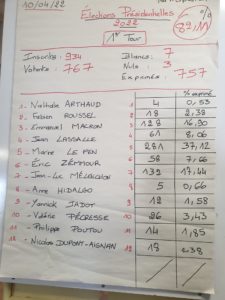 10/04/22
Élections Présidentielles
2022
%
82,11
1er Tour
Inscrits : 934
Blancs : 7
Votants : 767
Nuls : 3
Exprimés : 757
% exprimé
1 - Nathalie ARTHAUD 1 4 0,53
2 - Fabien ROUSSEL 2 18 2,38
3 - Emmanuel MACRON 3 128 16,90
4 - Jean LASSALLE 4 61 8,06
5 - Marine LE PEN 5 281 37,12
6 - Éric ZEMMOUR 6 58 7,66
7 - Jean-Luc MÉLENCHON 7 132 17,44
8 - Anne HIDALGO 8 5 0,66
9 - Yannick JADOT 9 12 1,58
10 - Valérie PÉCRESSE 10 26 3,43
11 - Philippe POUTOU 11 14 1,85
12 - Nicolas DUPONT-AIGNAN 12 18 2,38